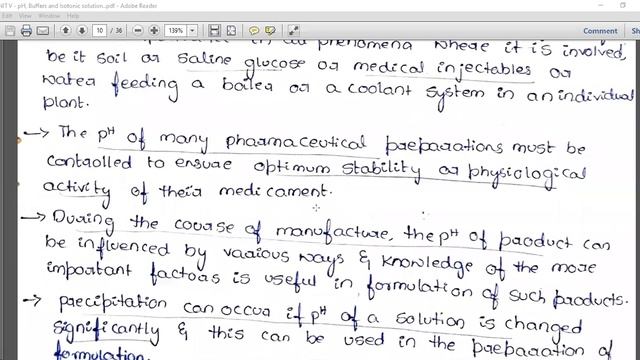 NIT V - pH, Buffers and Isotonic solution..pdf - Adobe Reader
Edit View Window Help
10 / 36 139% Comment Share
phenomena where it is involved,
be it soil or saline glucose or medical injectables or
water feeding a boiler or a coolant system in an individual
plant.
→ The pH of many pharmaceutical preparations must be
controlled to ensure optimum stability or physiological
activity of their medicament.
→ During the course of manufacture, the pH of product can
be influenced by various ways & knowledge of the more
important factors is useful in formulation of such products.
→ precipitation can occur if pH of a solution is changed
significantly & this can be used in the preparation of
formulation.